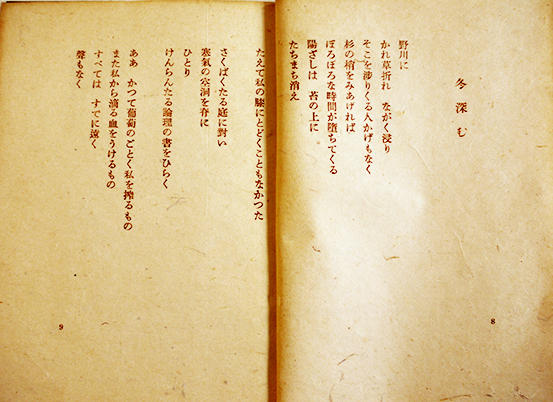 冬深む
野川に
かれ草折れ　ながく浸り
そこを渉りくる人かげもなく
杉の梢をみあげれば
ぼろぼろな時間が墮ちてくる
陽ざしは　苔の上に
たちまち消え
8
たえて私の膝にとどくこともなかつた
さくばくたる庭に對い
寒氣の空洞を脊に
ひとり
けんらんたる論理の書をひらく
ああ　かつて葡萄のごとく私を搾るもの
また私から滴る血をうけるもの
すべては　すでに遠く
聲もなく
9